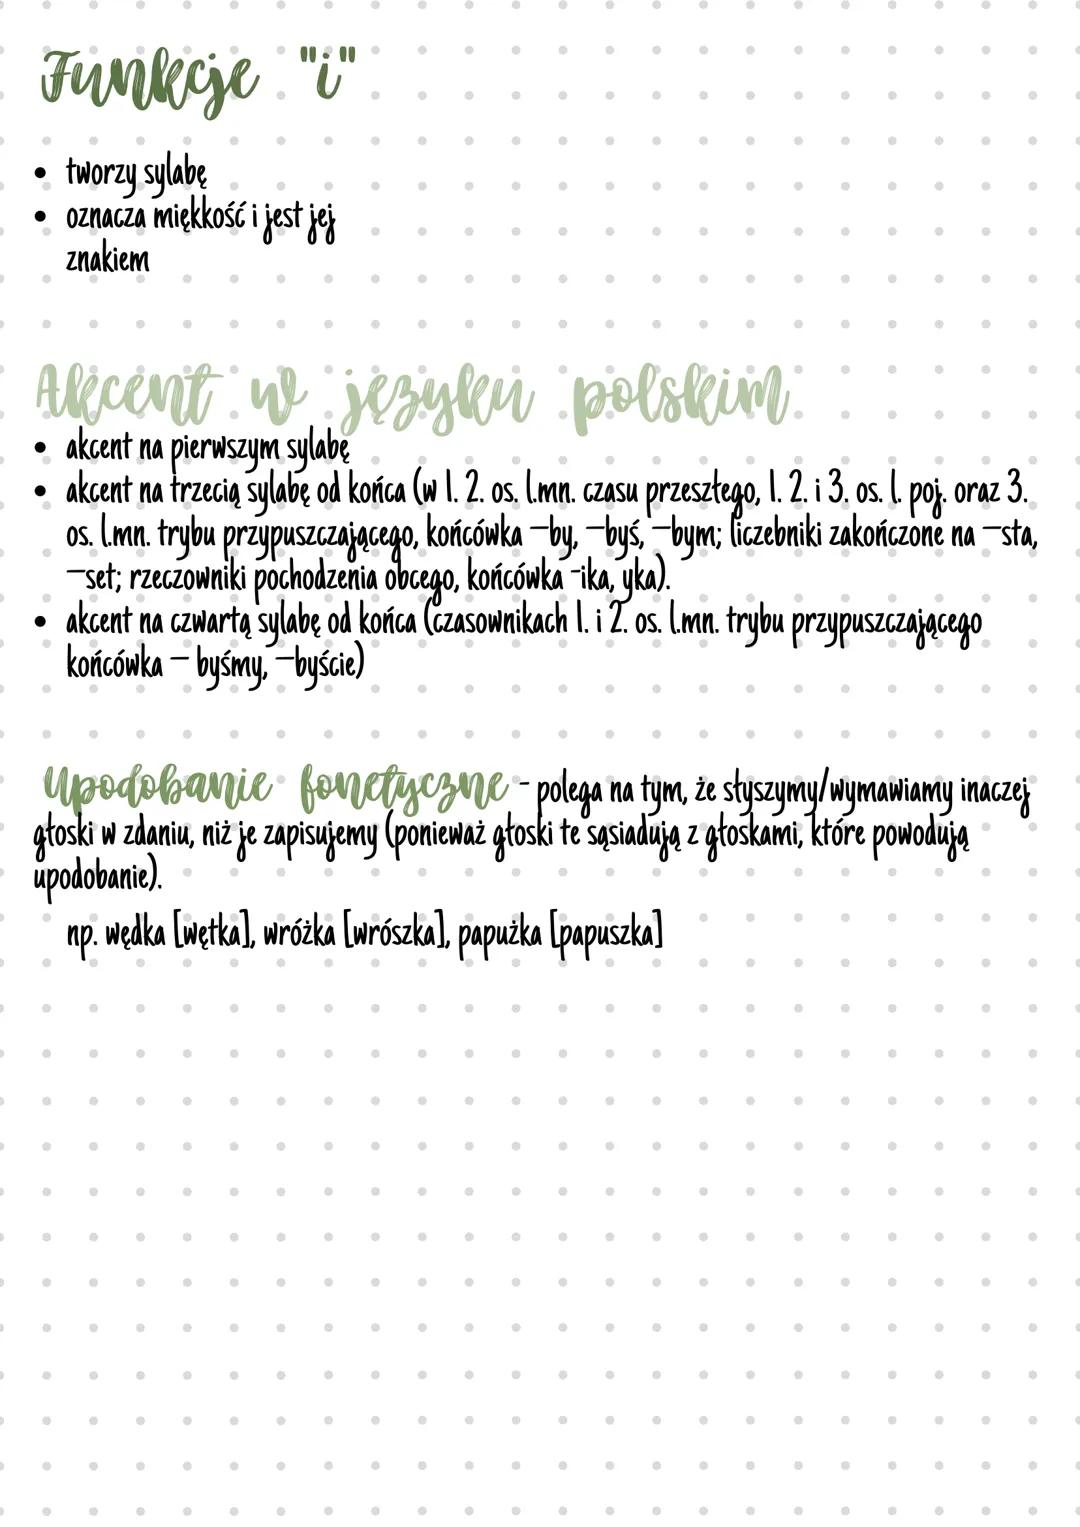 Funkcje "i"
• tworzy sylabę
• oznacza miękkość i jest jej
znakiem
Akcent w języku polskim
• akcent na pierwszym sylabę
• akcent na trzecią sylabę od końca (w 1. 2. os. l.mn. czasu przeszłego, 1. 2. i 3. os. l. poj. oraz 3.
os. l.mn. trybu przypuszczającego, końcówka –by, –byś, –bym; liczebniki zakończone na –sta,
–set; rzeczowniki pochodzenia obcego, końcówka -ika, yka).
• akcent na czwartą sylabę od końca (czasownikach 1. i 2. os. l.mn. trybu przypuszczającego
końcówka – byśmy, –byście)
Upodobanie fonetyczne - polega na tym, że słyszymy/wymawiamy inaczej
głoski w zdaniu, niż je zapisujemy (ponieważ głoski te sąsiadują z głoskami, które powodują
upodobanie).
np. wędka [wętka], wróżka [wrószka], papużka [papuszka]